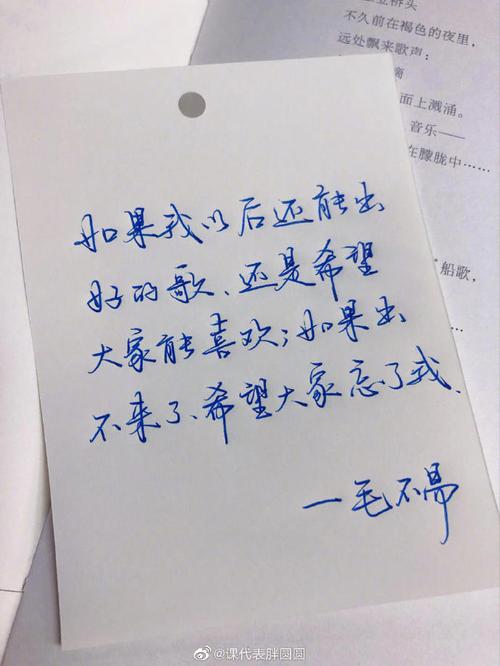 不久前在褐色的夜里,
远处飘来歌声:
面上溅涌。
音乐——
在朦胧中……
船歌,
如果我以后还能出
好的歌、还是希望
大家能喜欢;如果出
不来了、希望大家忘了我.
一毛不易
@课代表胖圆圆